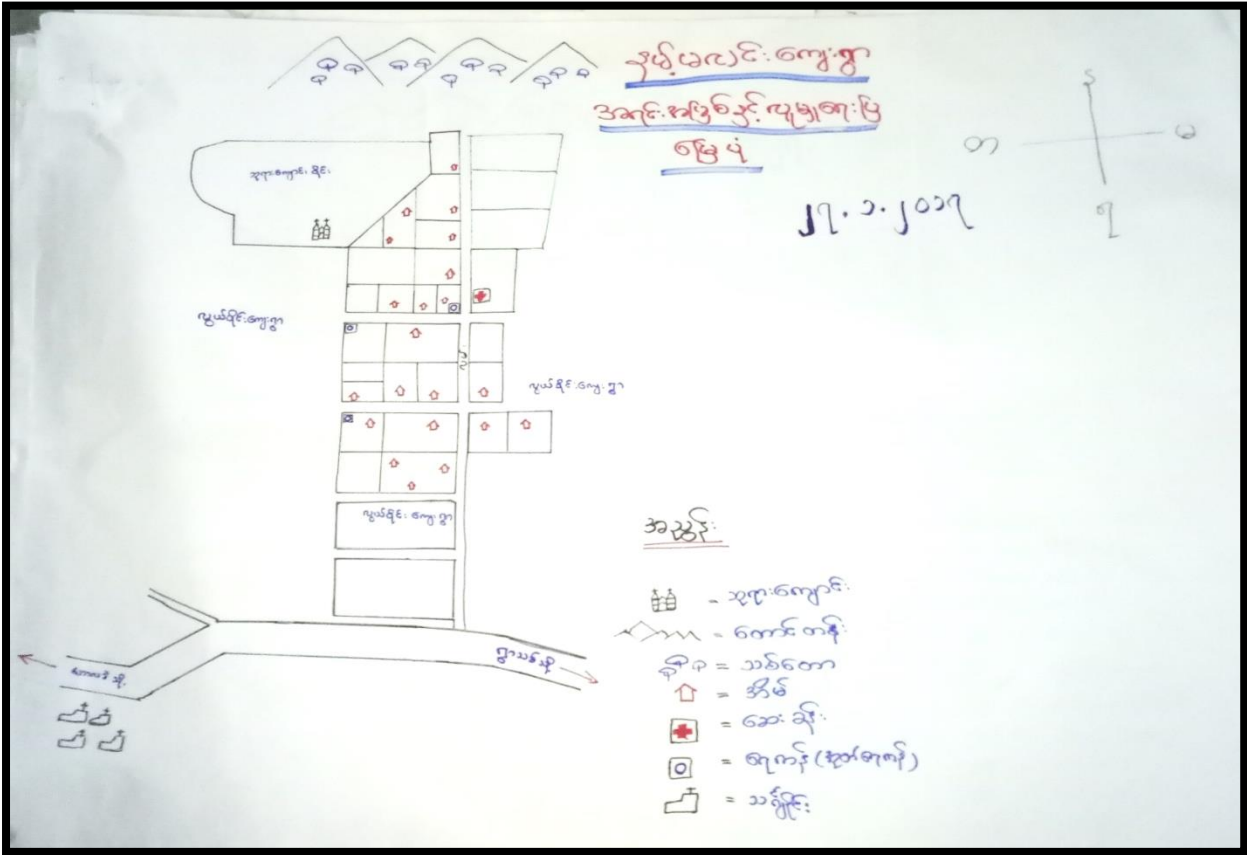 နယ့်မလင်းကျေးရွာ
အရင်းအမြစ်နှင့်လူမှုရေးပြ
မြေပုံ
၂၇.၁.၂၀၁၇
တ
မ
ဘုရားကျောင်းဝိုင်း
လွယ်ခိုင်ကျေးရွာ
လွယ်ခိုင်ကျေးရွာ
လွယ်ခိုင်ကျေးရွာ
ရွာသစ်သို့
အညွှန်း
= ဘုရားကျောင်း
= တောင်တန်း
= သစ်တော
= အိမ်
= ဆေးခန်း
= ရေကန် (အုတ်ရေကန်)
= သင်္ချိုင်း